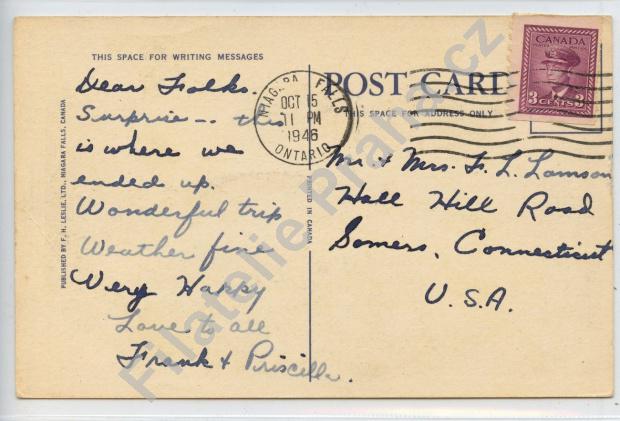 THIS SPACE FOR WRITING MESSAGES
Dear Folks
Surprise -- this
is where we
ended up.
Wonderful trip
Weather fine
Very Happy
Love to all
Frank & Priscilla.
PUBLISHED BY F. H. LESLIE, LTD., NIAGARA FALLS, CANADA
PRINTED IN CANADA
NIAGARA FALLS
OCT 15
11 PM
1946
ONTARIO
POST CARD
THIS SPACE FOR ADDRESS ONLY
CANADA
3 CENTS 3
Mr & Mrs. F. L. Lamson
Hall Hill Road
Somers, Connecticut
U.S.A.
Filatelie Praha.cz